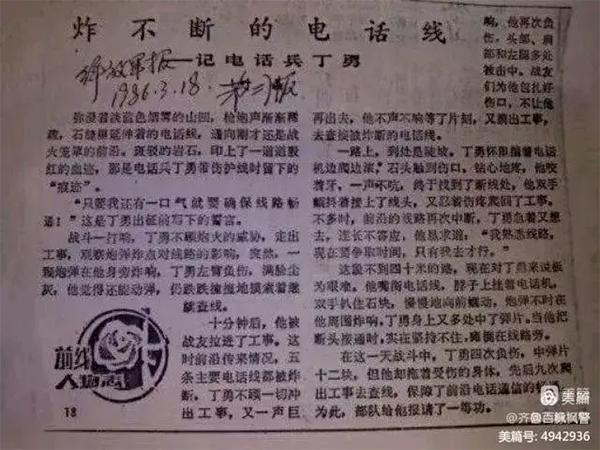 炸不断的电话线
——记电话兵丁勇
解放军报
1986.3.18. 第二版
弥漫着淡蓝色烟雾的山回，枪炮声渐渐稀
疏，石缝里延伸着的电话线，通向刚才还是战
火笼罩的前沿。斑驳的岩石，印上了一道道殷
红的血迹，那是电话兵丁勇带伤护线时留下的
“痕迹”。
“只要我还有一口气就要确保线路畅
通！”这是丁勇出征前写下的誓言。
战斗一打响，丁勇不顾炮火的威胁，走出
工事，观察炮弹炸点对线路的影响，突然，一
颗炮弹在他身旁炸响，丁勇左臂负伤，满脸尘
灰，他觉得还能动弹，仍跌跌撞撞地摸索着继
续查线。
十分钟后，他被
战友拉进了工事。这
时前沿传来情况，五
条主要电话线都被炸
断，丁勇不顾一切冲
出工事，又一声巨
响，他再次负
伤，头部、肩
部和左腿多处
被击中。战友
们为他包扎好
伤口，不让他
再出去，他不声不响等了片刻，又跳出工事，
去查接被炸断的电话线。
一路上，到处是陡坡。丁勇怀抱着电话
机边爬边滚，石头触到伤口，钻心地疼，他咬
着牙，一声不吭，终于找到了断线处，他双手
颤抖着接上了线头，又忍着伤疼爬回了工事。
不多时，前沿的线路再次中断，丁勇急着又想
去，连长不答应，他恳求道，“我熟悉线路，
现在要争取时间，只有我去才行。”
这段不到四十米的路，现在对丁勇来说极
为艰难。他嘴衔电话线，脖子上挂着电话机，
双手扒住石块，慢慢地向前蠕动，炮弹不时在
他周围炸响，丁勇身上又多处中了弹片。当他把
断头接通时，实在坚持不住，瘫倒在线路旁。
在这一天战斗中，丁勇四次负伤，中弹片
十二块，但他却拖着受伤的身体，先后九次爬
出工事去查线，保障了前沿电话通信的
为此，部队给他报请了一等功。
前线
人物志
18
美篇
@齐鲁百脉枫警
美篇号: 4942936